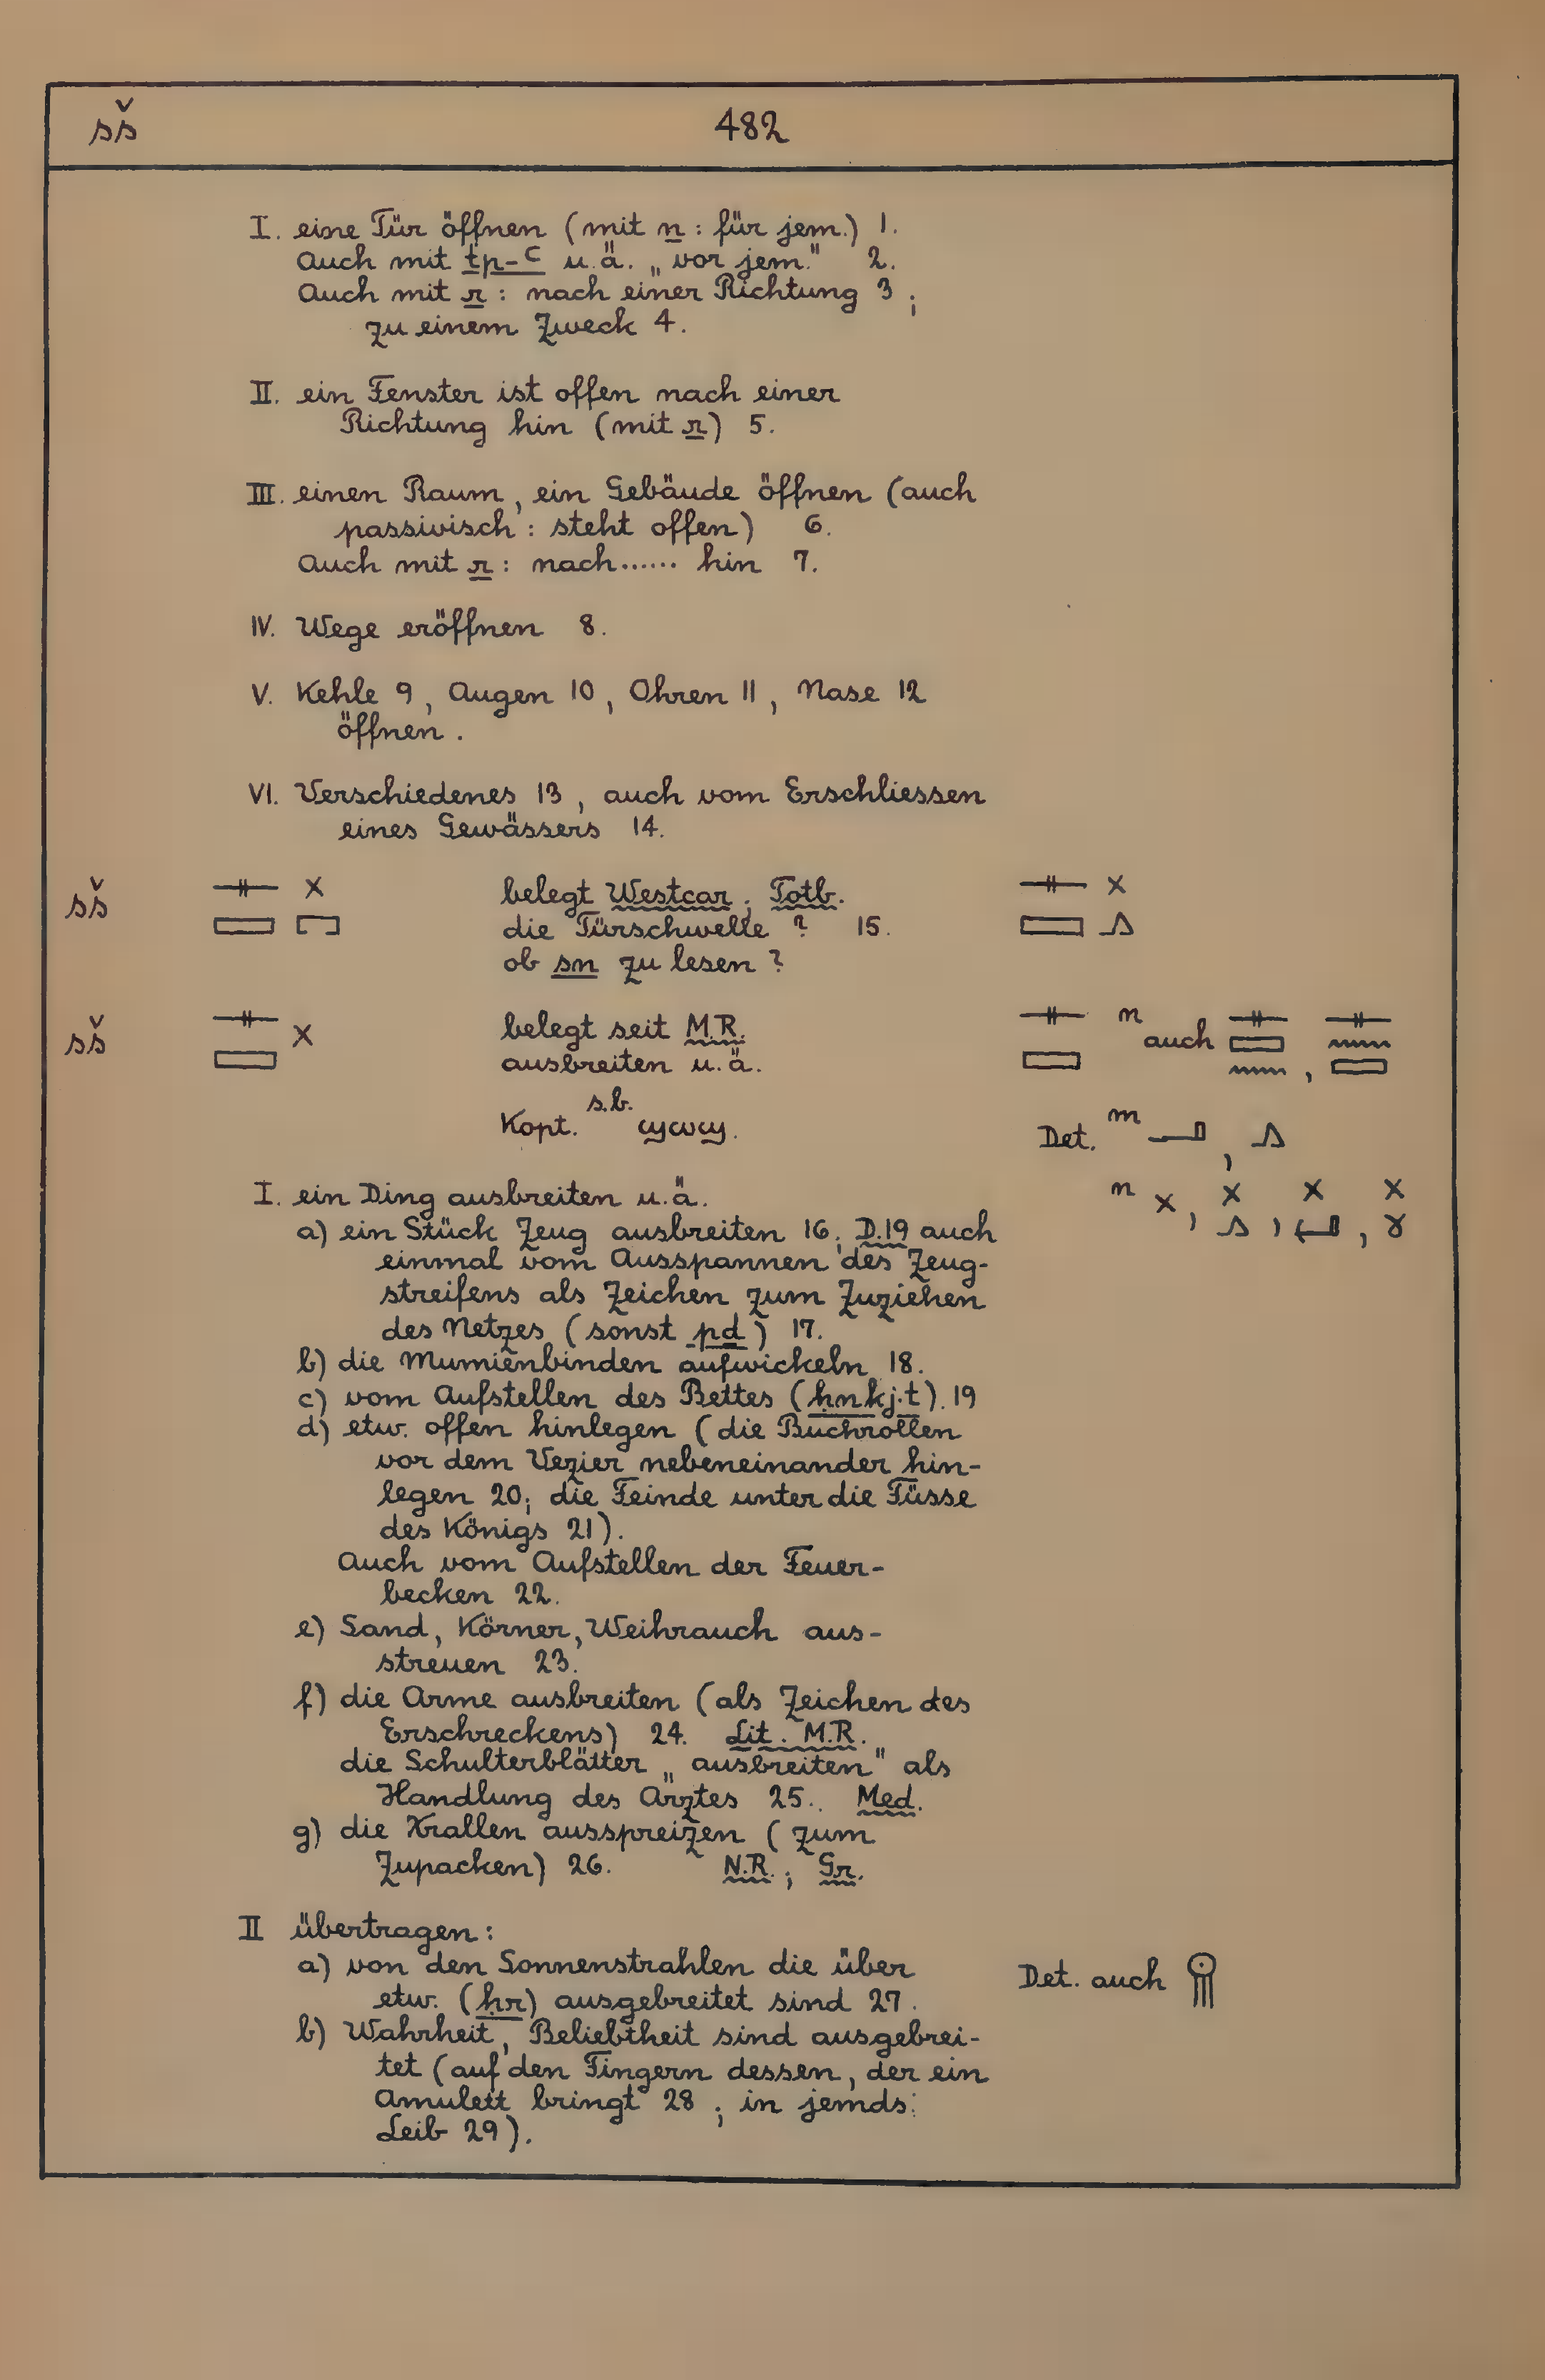 sš 482
I. eine Tür öffnen (mit n : für jem.) 1.
Auch mit tp-ꜥ u.ä. „vor jem." 2.
Auch mit r : nach einer Richtung 3 ;
zu einem Zweck 4.
II. ein Fenster ist offen nach einer
Richtung hin (mit r) 5.
III. einen Raum, ein Gebäude öffnen (auch
passivisch : steht offen) 6.
Auch mit r : nach...... hin 7.
IV. Wege eröffnen 8.
V. Kehle 9, Augen 10, Ohren 11, Nase 12
öffnen.
VI. Verschiedenes 13, auch vom Erschliessen
eines Gewässers 14.
sš belegt Westcar; Totb.
die Türschwelle ? 15.
ob sn zu lesen ?
sš belegt seit M.R. n auch
ausbreiten u.ä.
s.b.
Kopt. ϣⲱϣ. Det. m
I. ein Ding ausbreiten u.ä. n
a) ein Stück Zeug ausbreiten 16; D.19 auch
einmal vom Ausspannen des Zeug-
streifens als Zeichen zum Zuziehen
des Netzes (sonst pḏ) 17.
b) die Mumienbinden aufwickeln 18.
c) vom Aufstellen des Bettes (ḥnkj.t). 19
d) etw. offen hinlegen (die Buchrollen
vor dem Vezier nebeneinander hin-
legen 20; die Feinde unter die Füsse
des Königs 21).
Auch vom Aufstellen der Feuer-
becken 22.
e) Sand, Körner, Weihrauch aus-
streuen 23.
f) die Arme ausbreiten (als Zeichen des
Erschreckens) 24. Lit. M.R.
die Schulterblätter „ausbreiten" als
Handlung des Arztes 25. Med.
g) die Krallen ausspreizen (zum
Zupacken) 26. N.R.; Gr.
II übertragen:
a) von den Sonnenstrahlen die über Det. auch
etw. (ḥr) ausgebreitet sind 27.
b) Wahrheit, Beliebtheit sind ausgebrei-
tet (auf den Fingern dessen, der ein
Amulett bringt 28 ; in jemds.
Leib 29).